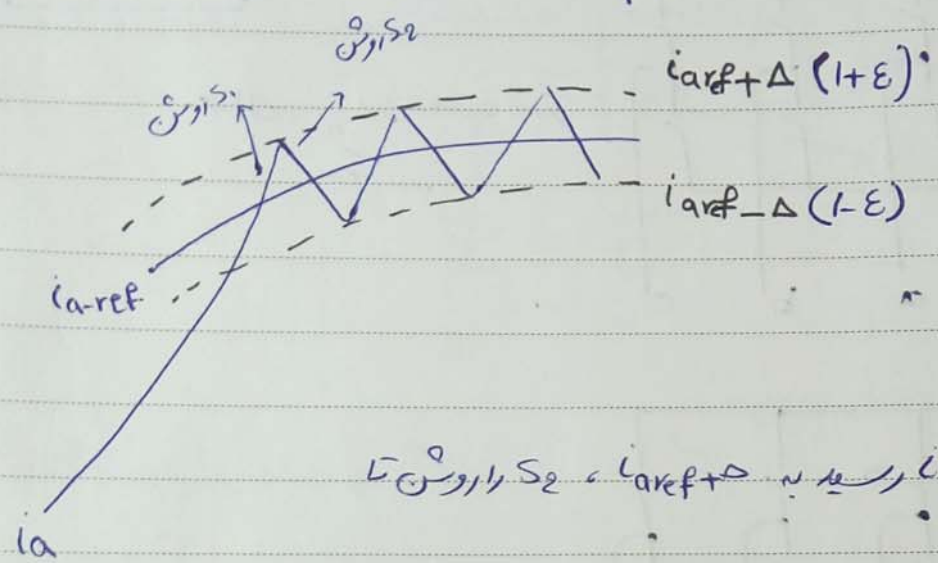 S2 روشن
S1 روشن
iaref + Δ (1+ε)
iaref - Δ (1-ε)
ia-ref
i رسید به iaref+Δ ، S2 را روشن تا
ia